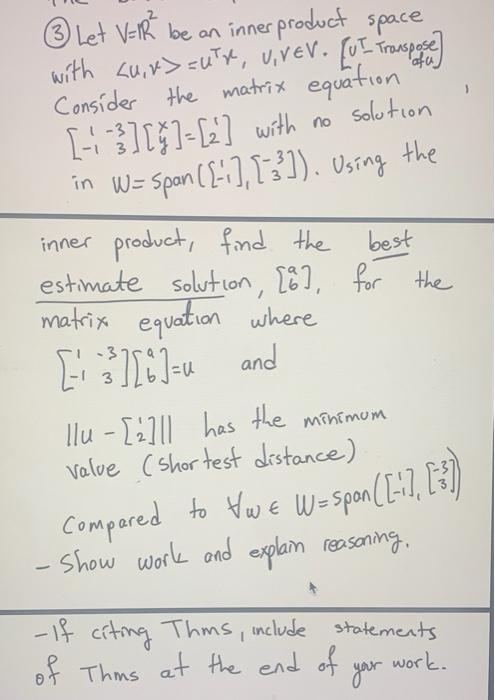 ③ Let V=ℝ² be an inner product space
with <u,v> = uᵀv, u,v∈V. [uᵀ- Transpose of u]
Consider the matrix equation
[1 -3; -1 3][x; y]=[1; 2] with no solution
in W= span([1; -1], [-3; 3]). Using the
inner product, find the best
estimate solution, [a; b], for the
matrix equation where
[1 -3; -1 3][a; b]=u and
||u - [1; 2]|| has the minimum
value (shortest distance)
Compared to ∀w∈ W=span([1; -1], [-3; 3])
- Show work and explain reasoning.
- If citing Thms, include statements
of Thms at the end of your work.